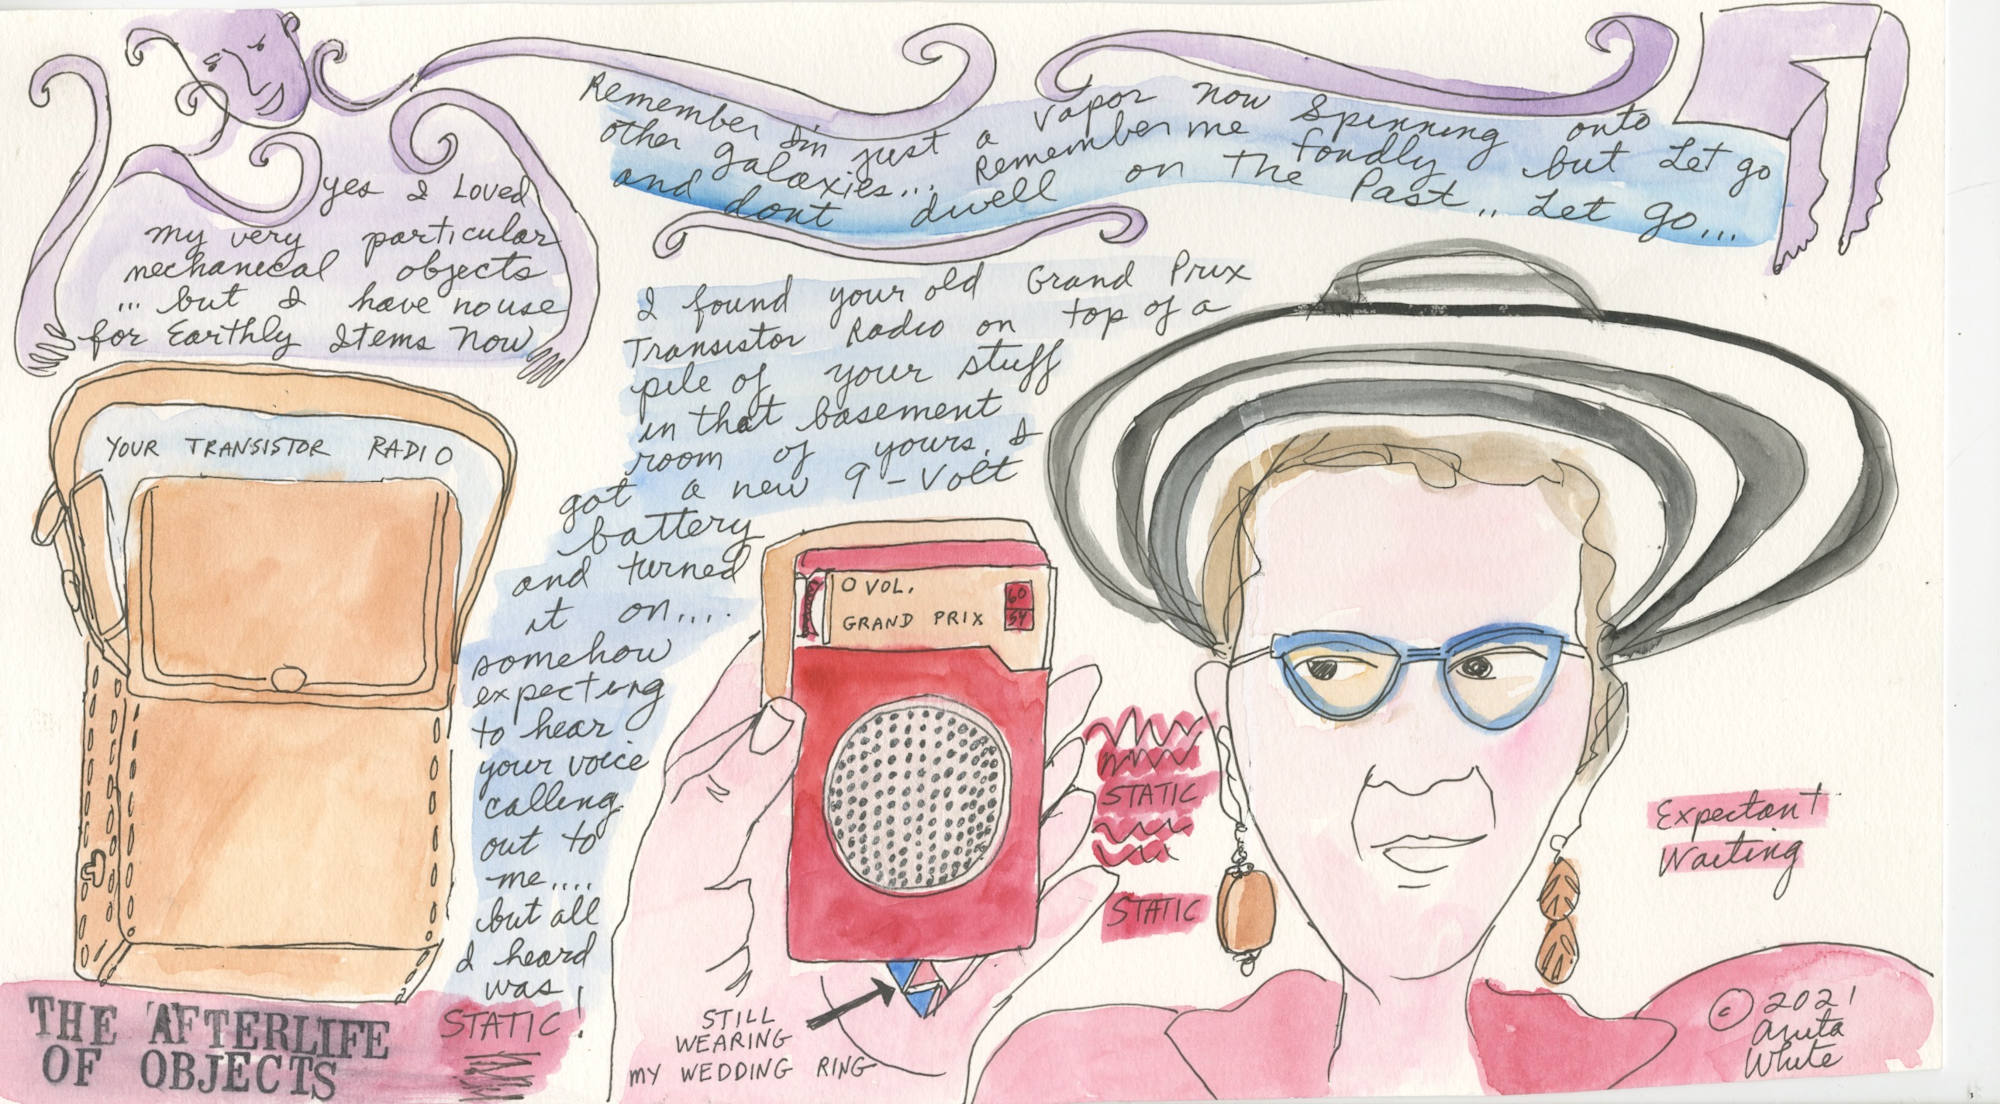 Remember I'm just a vapor now spinning onto
other galaxies... Remember me fondly but Let go
and dont dwell on The Past.. Let go...
yes I Loved
my very particular
mechanical objects
... but I have no use
for Earthly Items Now
I found your old Grand Prix
Transistor Radio on top of a
pile of your stuff
in that basement
room of yours. I
got a new 9-Volt
battery
and turned
it on....
somehow
expecting
to hear
your voice
calling
out to
me....
but all
I heard
was!
STATIC!
YOUR TRANSISTOR RADIO
O VOL.
GRAND PRIX
60
54
STATIC
STATIC
Expectant
Waiting
STILL
WEARING
MY WEDDING RING
THE AFTERLIFE
OF OBJECTS
© 2021
Anita
White